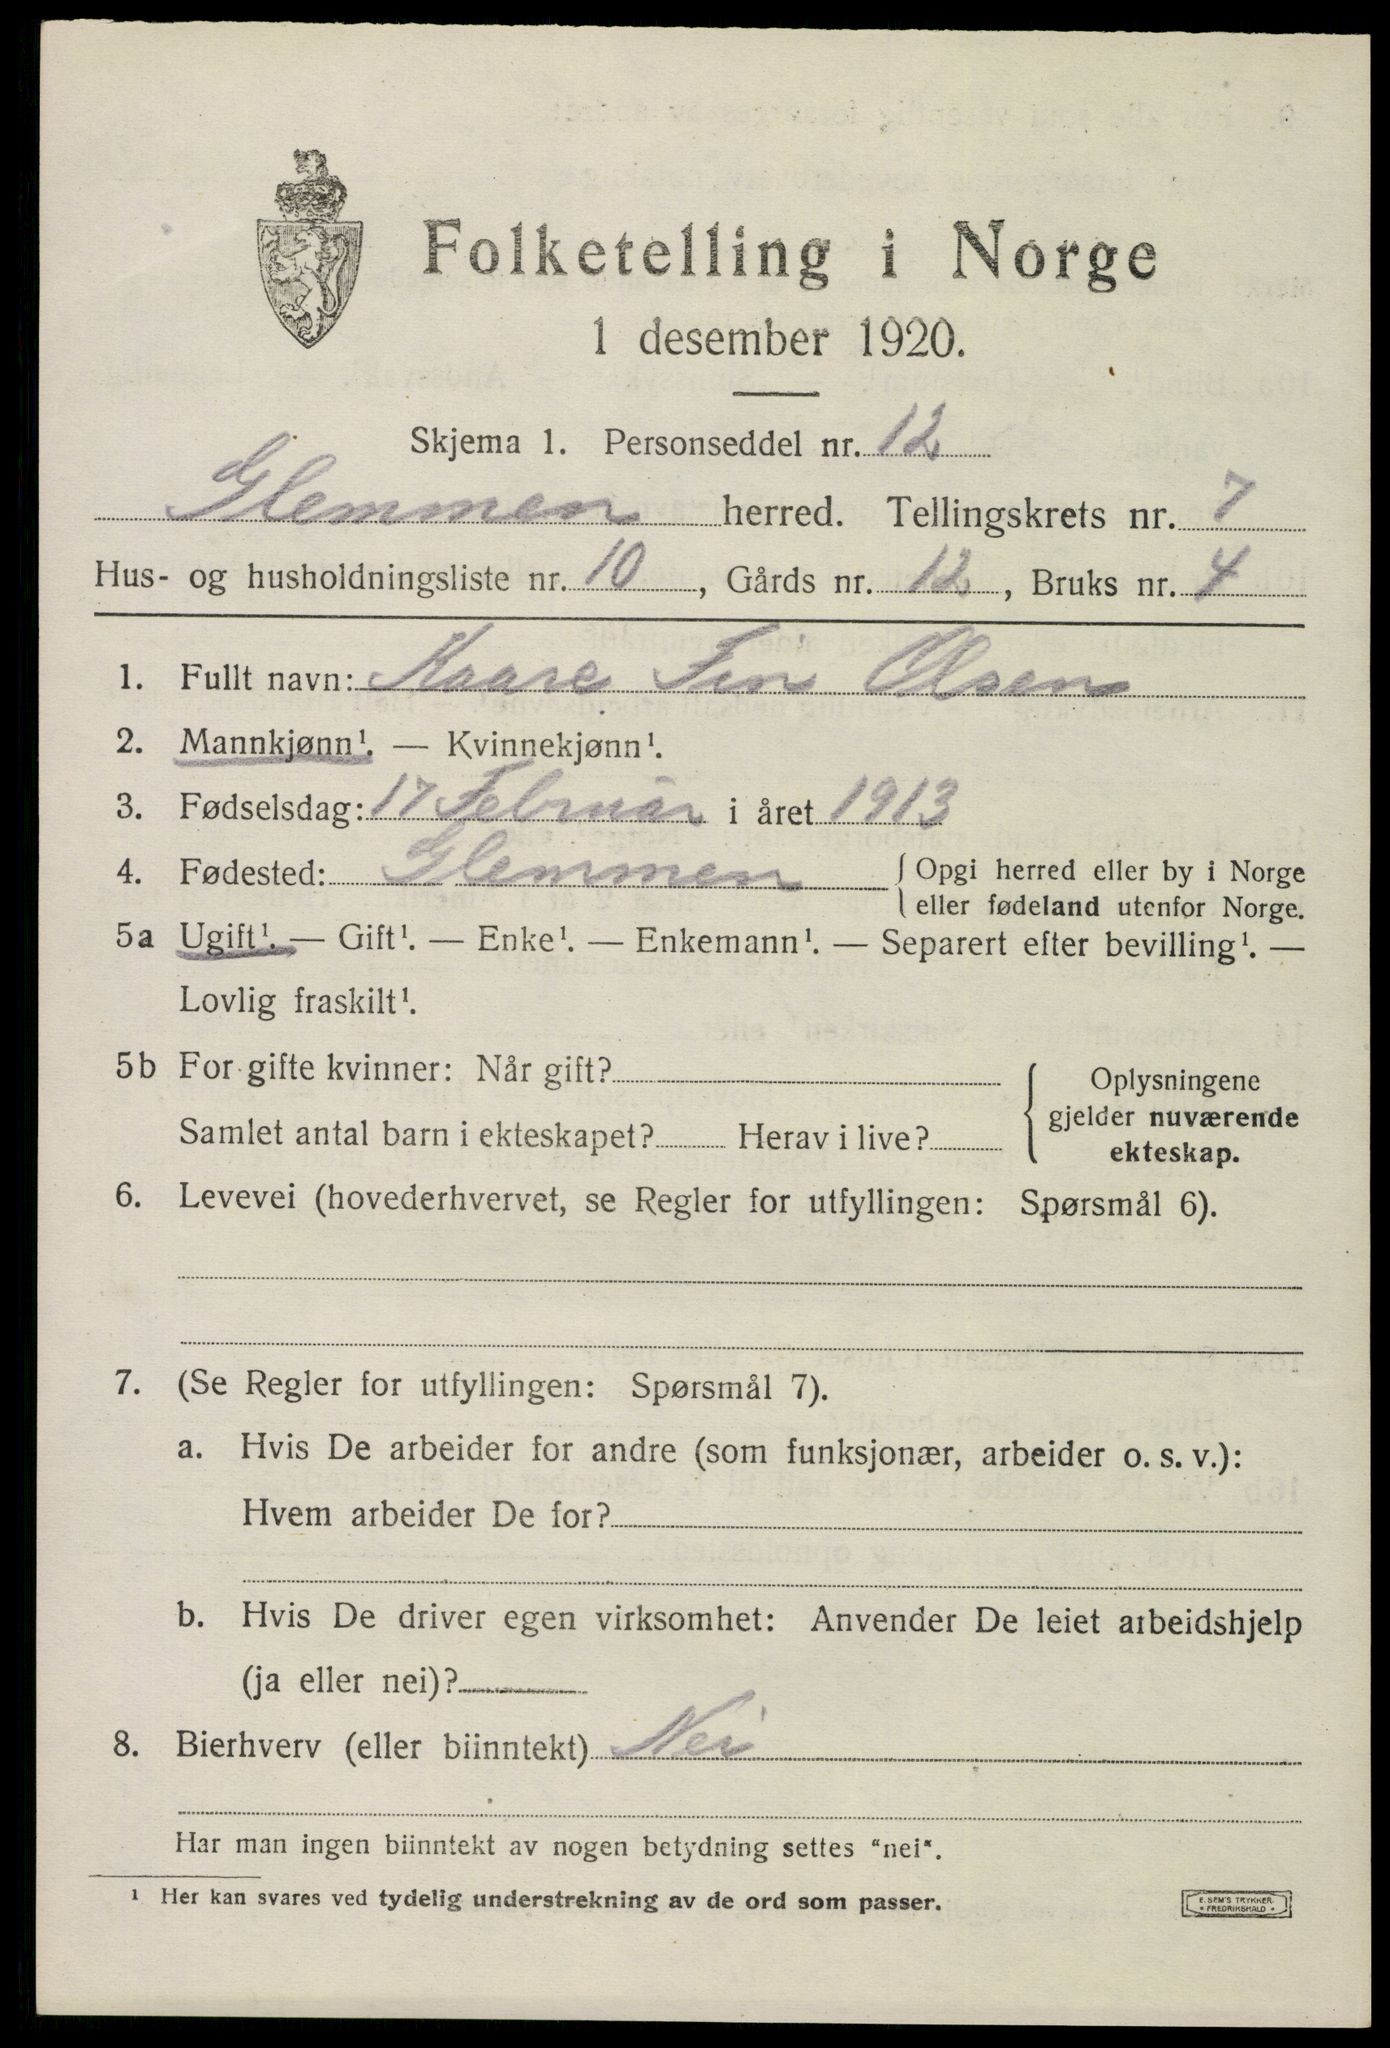 Folketelling i Norge
1 desember 1920.
Skjema 1. Personseddel nr. 12
Glemmen herred. Tellingskrets nr. 7
Hus- og husholdningsliste nr. 10, Gårds nr. 12, Bruks nr. 4
1. Fullt navn: Kaare Fin Olsen
2. Mannkjønn¹. — Kvinnekjønn¹.
3. Fødselsdag: 17 Februar i året 1913
4. Fødested: Glemmen { Opgi herred eller by i Norge
eller fødeland utenfor Norge.
5a Ugift¹. — Gift¹. — Enke¹. — Enkemann¹. — Separert efter bevilling¹. —
Lovlig fraskilt¹.
5b For gifte kvinner: Når gift? { Oplysningene
gjelder nuværende
Samlet antal barn i ekteskapet? Herav i live?
ekteskap.
6. Levevei (hovederhvervet, se Regler for utfyllingen: Spørsmål 6).
7. (Se Regler for utfyllingen: Spørsmål 7).
a. Hvis De arbeider for andre (som funksjonær, arbeider o. s. v.):
Hvem arbeider De for?
b. Hvis De driver egen virksomhet: Anvender De leiet arbeidshjelp
(ja eller nei)?
8. Bierhverv (eller biinntekt) Nei
Har man ingen biinntekt av nogen betydning settes "nei".
¹ Her kan svares ved tydelig understrekning av de ord som passer.
E. SEM'S TRYKKER.
FREDRIKSHALD